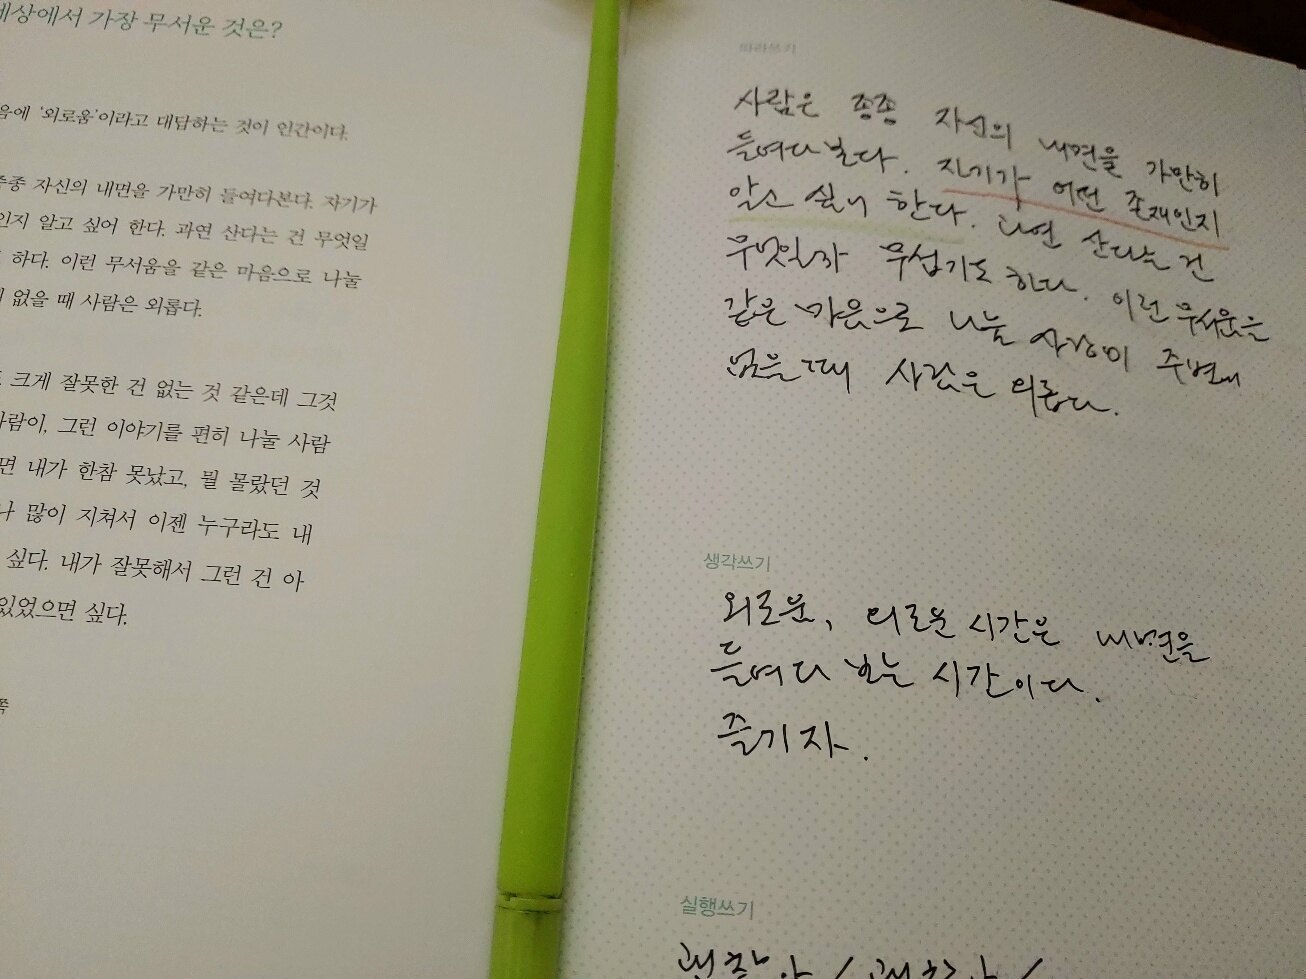 세상에서 가장 무서운 것은?
음에 '외로움'이라고 대답하는 것이 인간이다.
종종 자신의 내면을 가만히 들여다본다. 자기가
인지 알고 싶어 한다. 과연 산다는 건 무엇일
하다. 이런 무서움을 같은 마음으로 나눌
없을 때 사람은 외롭다.
크게 잘못한 건 없는 것 같은데 그것
사람이, 그런 이야기를 편히 나눌 사람
면 내가 한참 못났고, 뭘 몰랐던 것
나 많이 지쳐서 이젠 누구라도 내
싶다. 내가 잘못해서 그런 건 아
있었으면 싶다.
쪽
따라쓰기
사람은 종종 자신의 내면을 가만히
들여다본다. 자기가 어떤 존재인지
알고 싶어 한다. 과연 산다는 건
무엇일까 무섭기도 하다. 이런 무서움을
같은 마음으로 나눌 사람이 주변에
없을 때 사람은 외롭다.
생각쓰기
외로움, 외로운 시간은 내면을
들여다 보는 시간이다.
즐기자.
실행쓰기